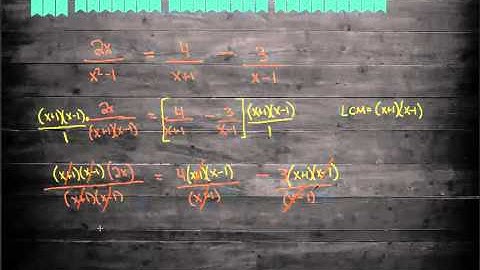 2x/(x²-1) = 4/(x+1) - 3/(x-1)
(x+1)(x-1)/1 · 2x/((x+1)(x-1)) = [4/(x+1) - 3/(x-1)] (x+1)(x-1)/1 LCM=(x+1)(x-1)
(x+1)(x-1)(2x)/((x+1)(x-1)) = 4(x+1)(x-1)/(x+1) - 3(x+1)(x-1)/(x-1)